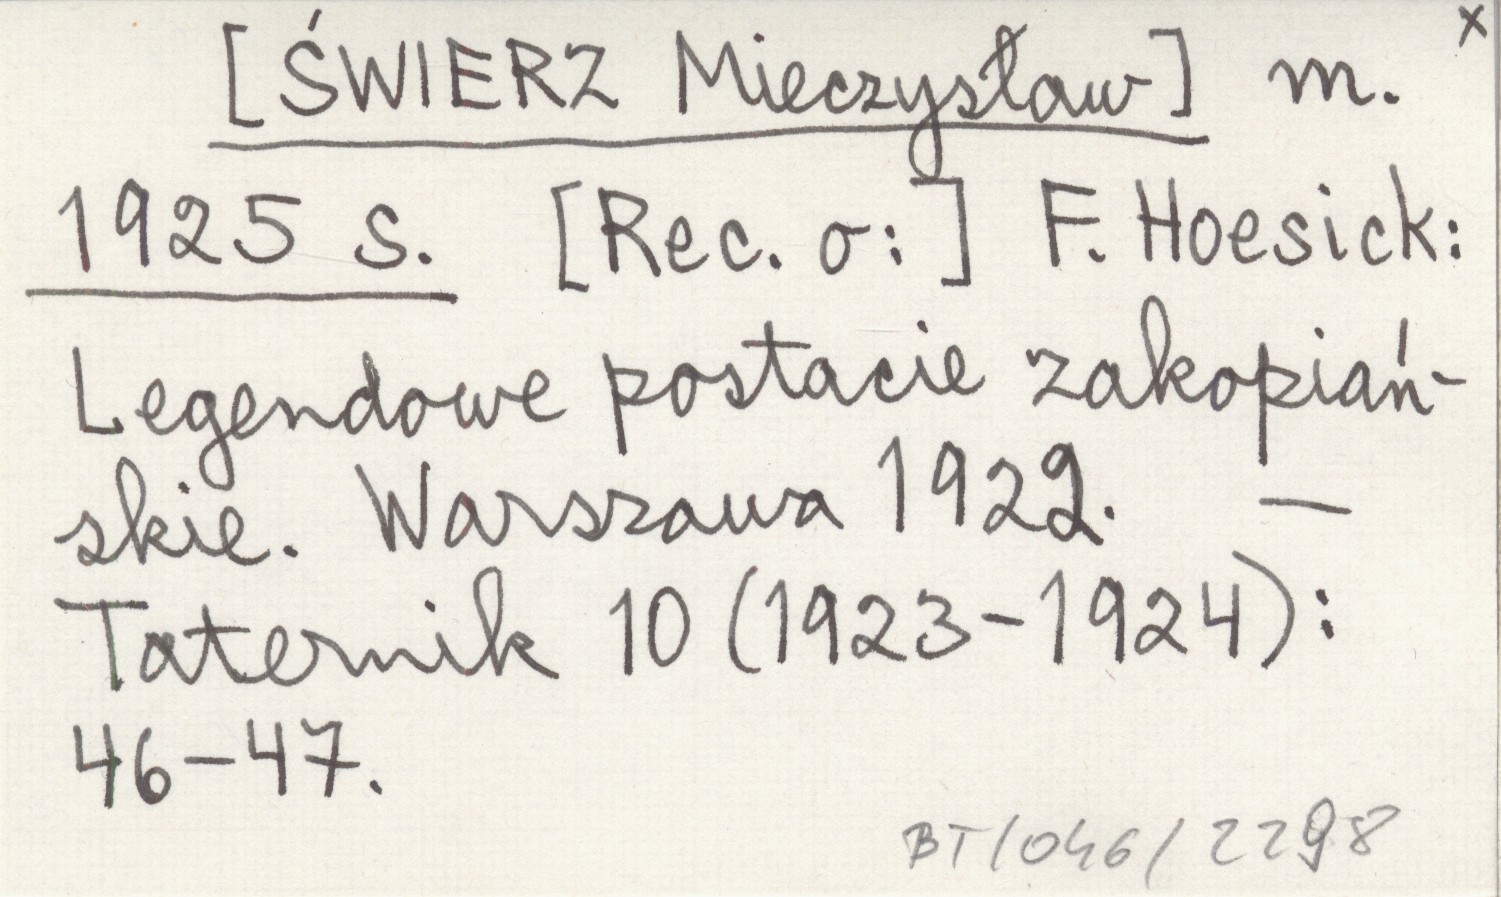 [ŚWIERZ Mieczysław] m. x
1925 s. [Rec. o:] F. Hoesick:
Legendowe postacie zakopiań-
skie. Warszawa 1922. —
Taternik 10 (1923-1924):
46-47.
BT/046/2298